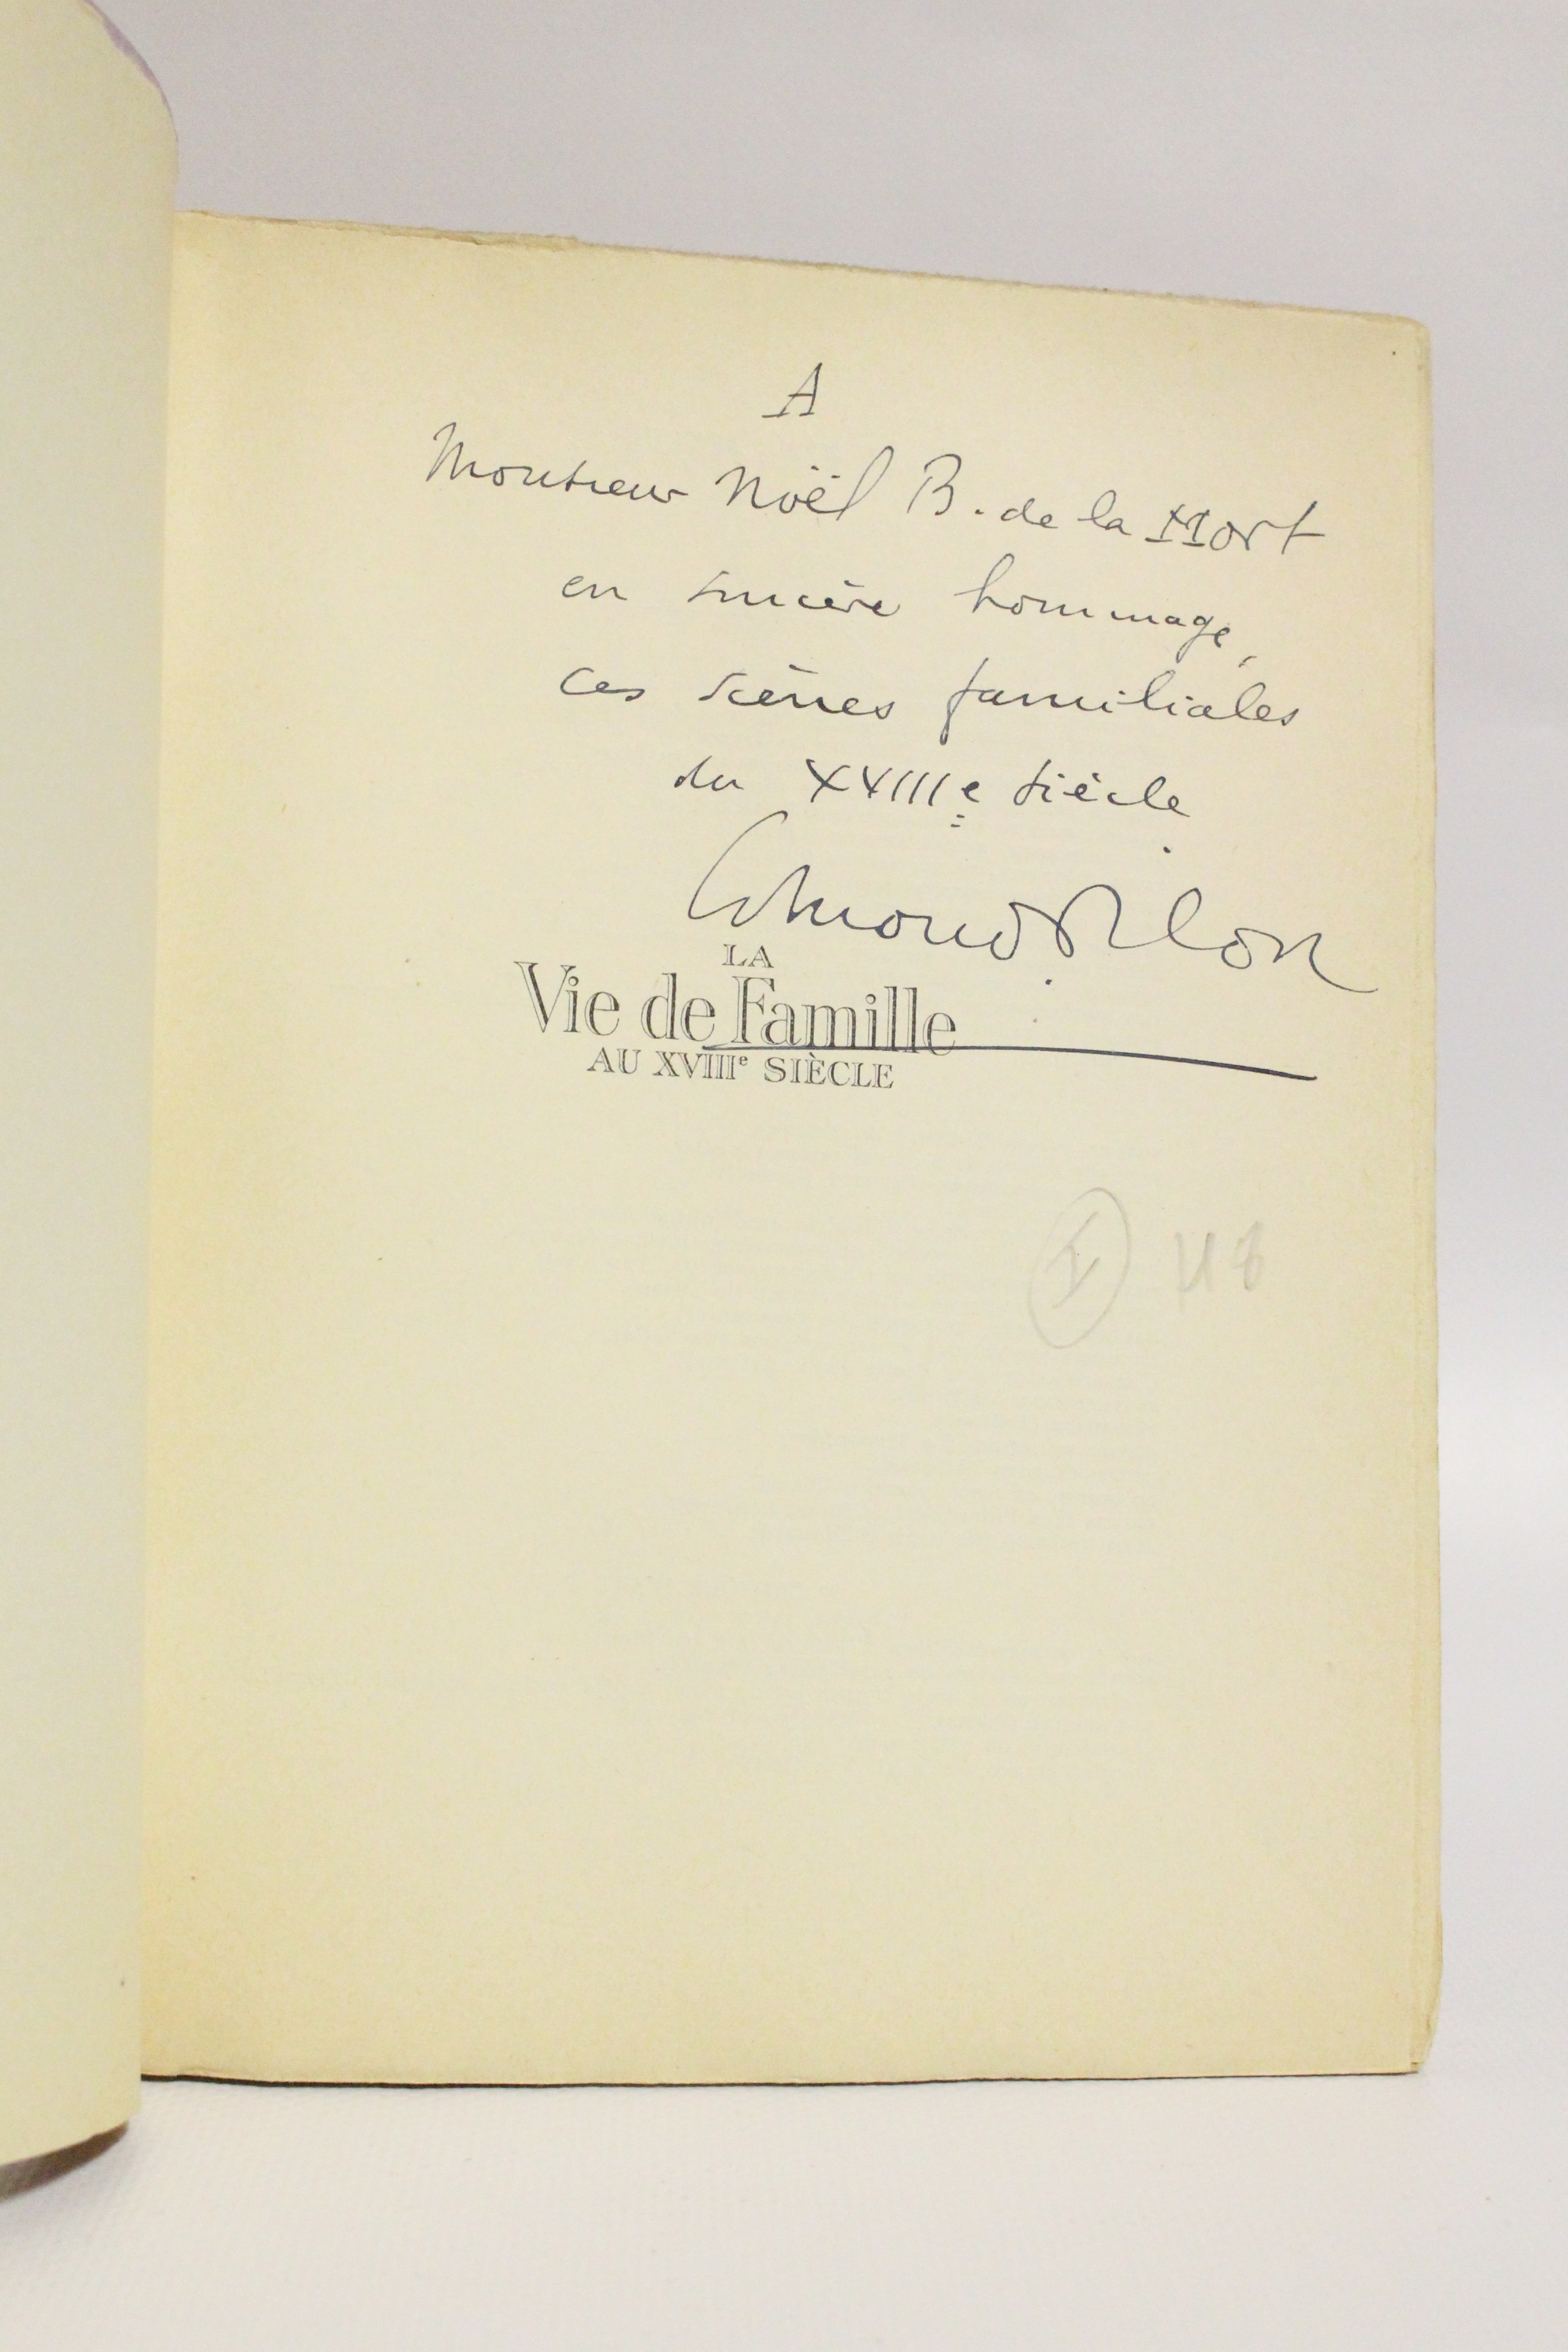 A
Monsieur Noël B. de la Mort
en sincère hommage,
ces scènes familiales
du XVIIIe siècle
Edmond Pilon
LA
Vie de Famille
AU XVIIIe SIÈCLE
I